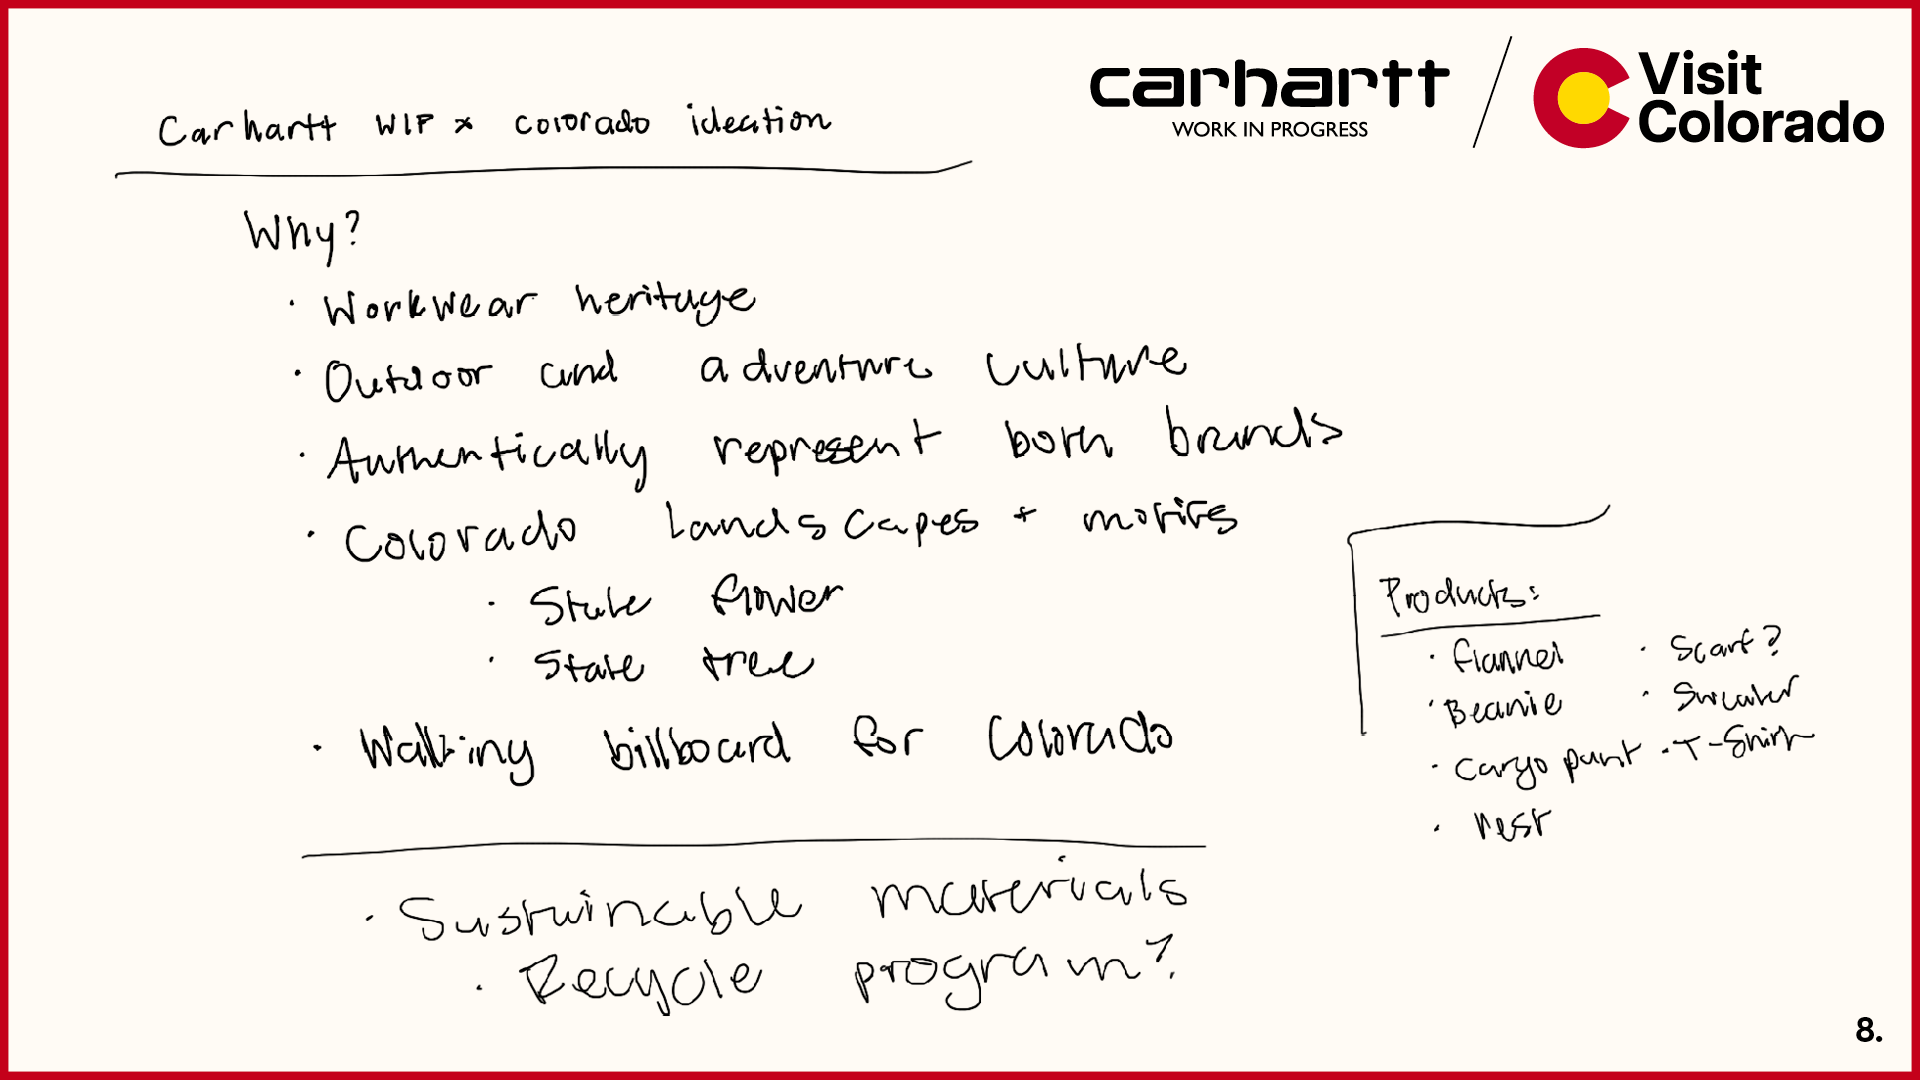 carhartt
WORK IN PROGRESS
Visit
Colorado
Carhartt WIP x Colorado ideation
Why?
· Workwear heritage
· Outdoor and adventure culture
· Authentically represent both brands
· Colorado Landscapes + motifs
· State flower
· State tree
· Walking billboard for Colorado
Products:
· flannel
· Scarf?
· Beanie
· Sweater
· Cargo pant
· T-Shirt
· Vest
· Sustainable materials
· Recycle program?
8.